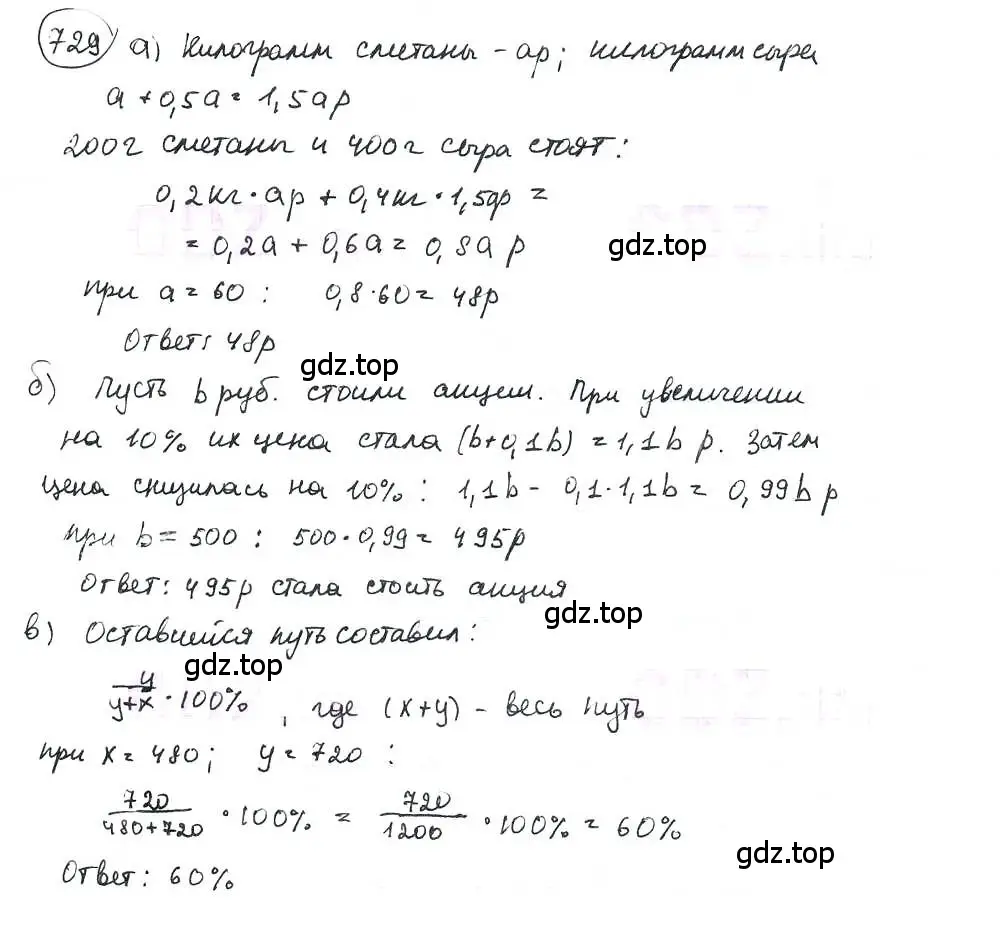 729 а) Килограмм сметаны - ар; килограмм сыра
a + 0,5a = 1,5a р
200г сметаны и 400г сыра стоят:
0,2кг · aр + 0,4кг · 1,5aр =
= 0,2a + 0,6a = 0,8a р
gdz.top
при a = 60 : 0,8 · 60 = 48р
Ответ: 48р
gdz.top
б) Пусть b руб. стоили акции. При увеличении
на 10% их цена стала (b+0,1b) = 1,1b р. Затем
цена снизилась на 10% : 1,1b - 0,1 · 1,1b = 0,99b р
при b = 500 : 500 · 0,99 = 495р
Ответ: 495р стала стоить акция
gdz.top
в) Оставшейся путь составил:
gdz.top
y/y+x · 100% , где (x+y) - весь путь
при x = 480; y = 720 :
720/480+720 · 100% = 720/1200 · 100% = 60%
gdz.top
Ответ: 60%